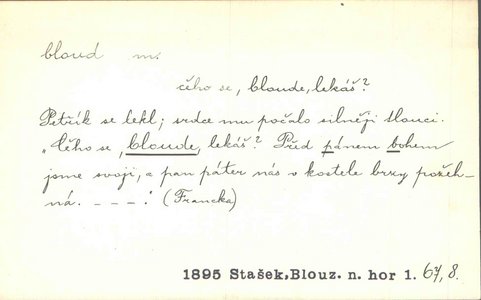 bloud m.
čeho se, bloude, lekáš?
Petřík se lekl; srdce mu počalo silněji tlouci.
„Čeho se, bloude, lekáš? Před pánem bohem
jsme svoji, a pan páter nás v kostele brzy požeh-
ná. _ _ _ .“ (Francka)
1895 Stašek, Blouz. n. hor 1. 67, 8.